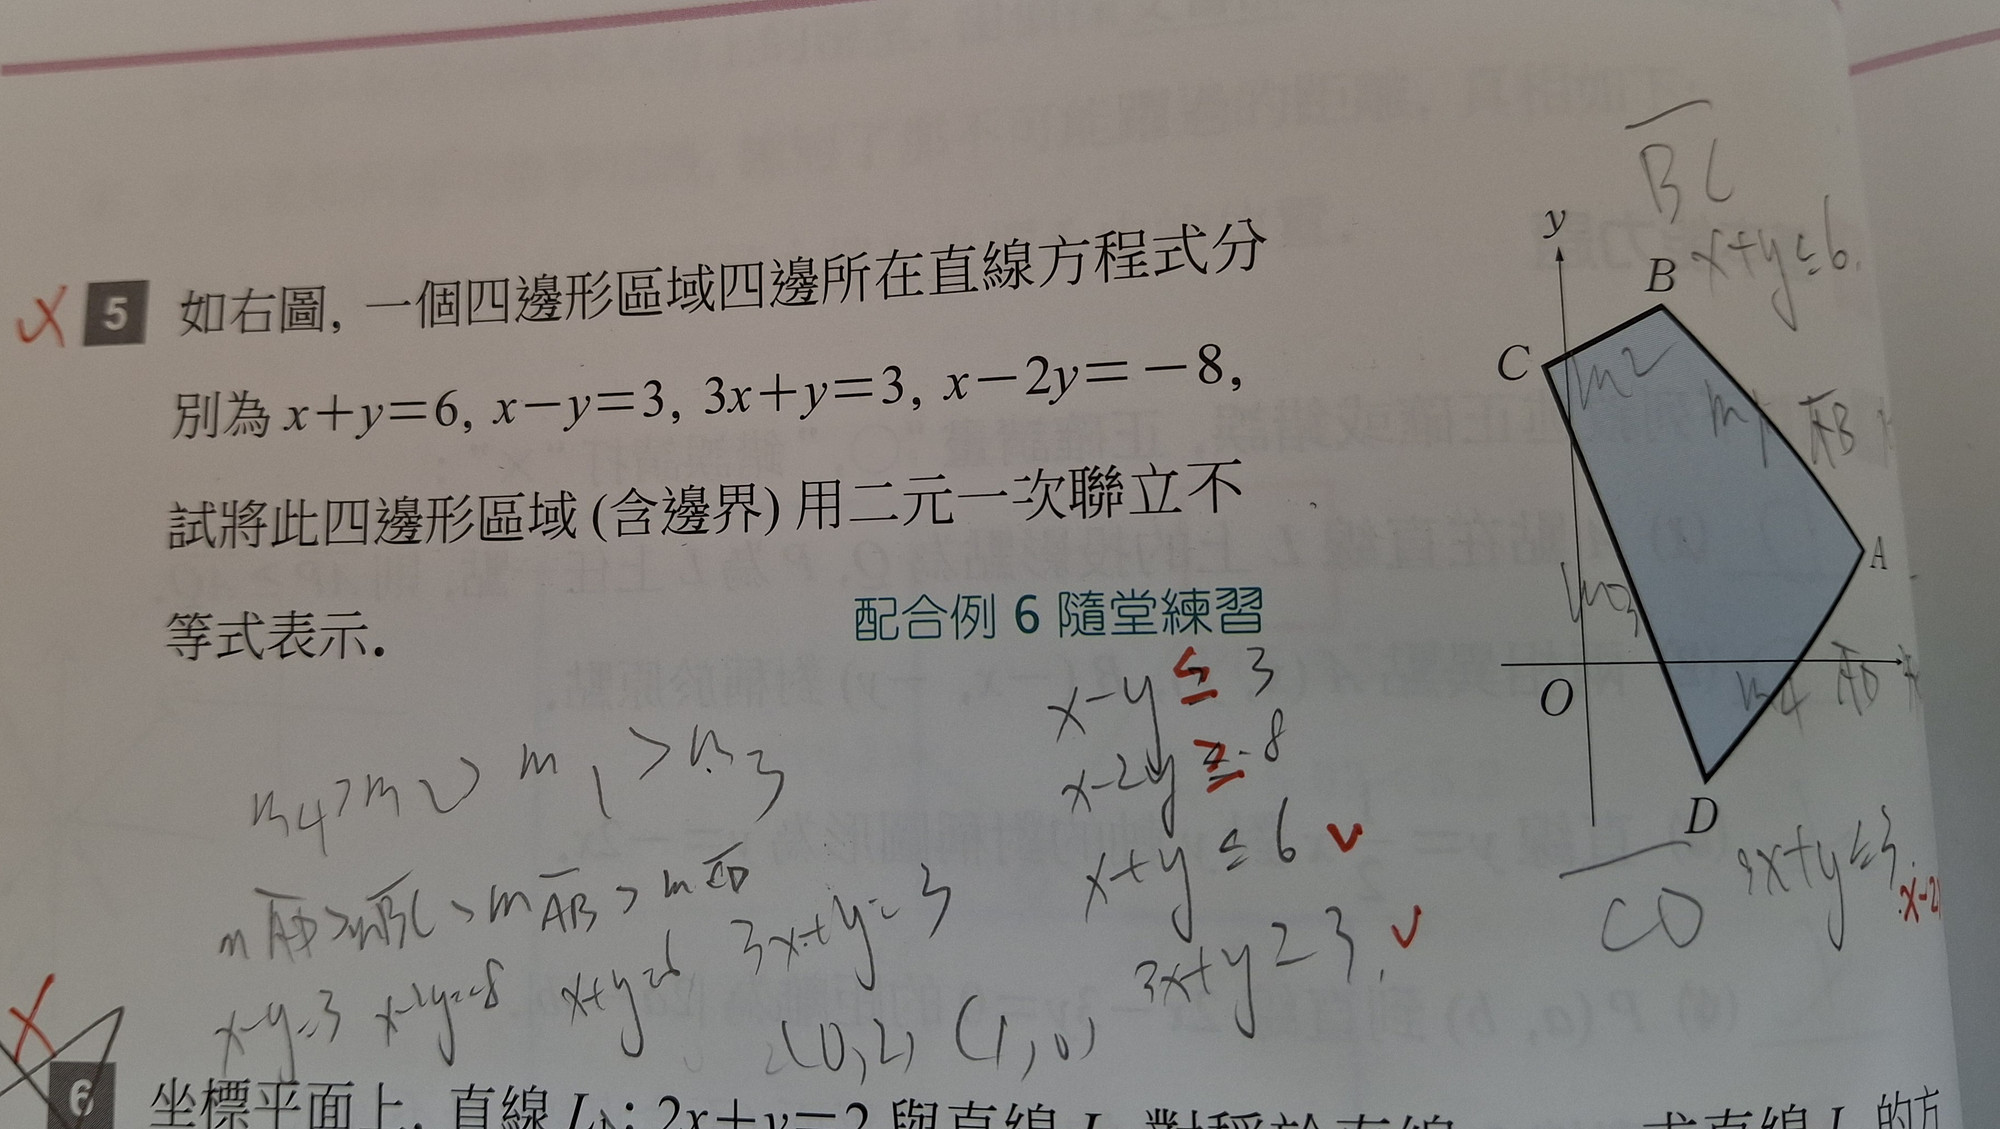 5 如右圖, 一個四邊形區域四邊所在直線方程式分
別為 x+y=6, x−y=3, 3x+y=3, x−2y=−8,
試將此四邊形區域 (含邊界) 用二元一次聯立不
等式表示.
配合例 6 隨堂練習
y
B
C
A
O
D
BC
x+y≤6
m2
m1
AB
m3
m4
AD
CD
3x+y≤3
x-2
x-y≤3
x-2y≥-8
x+y≤6
3x+y≥3
m4>m2>m1>m3
mAD>mBC>mAB>mCD
x-y=3 x-2y=-8 x+y=6 3x+y=3
(0,2) (1,0)
6 坐標平面上, 直線 L₁: 2x+y=2 與直線 L 對稱於直線
求直線 L 的方